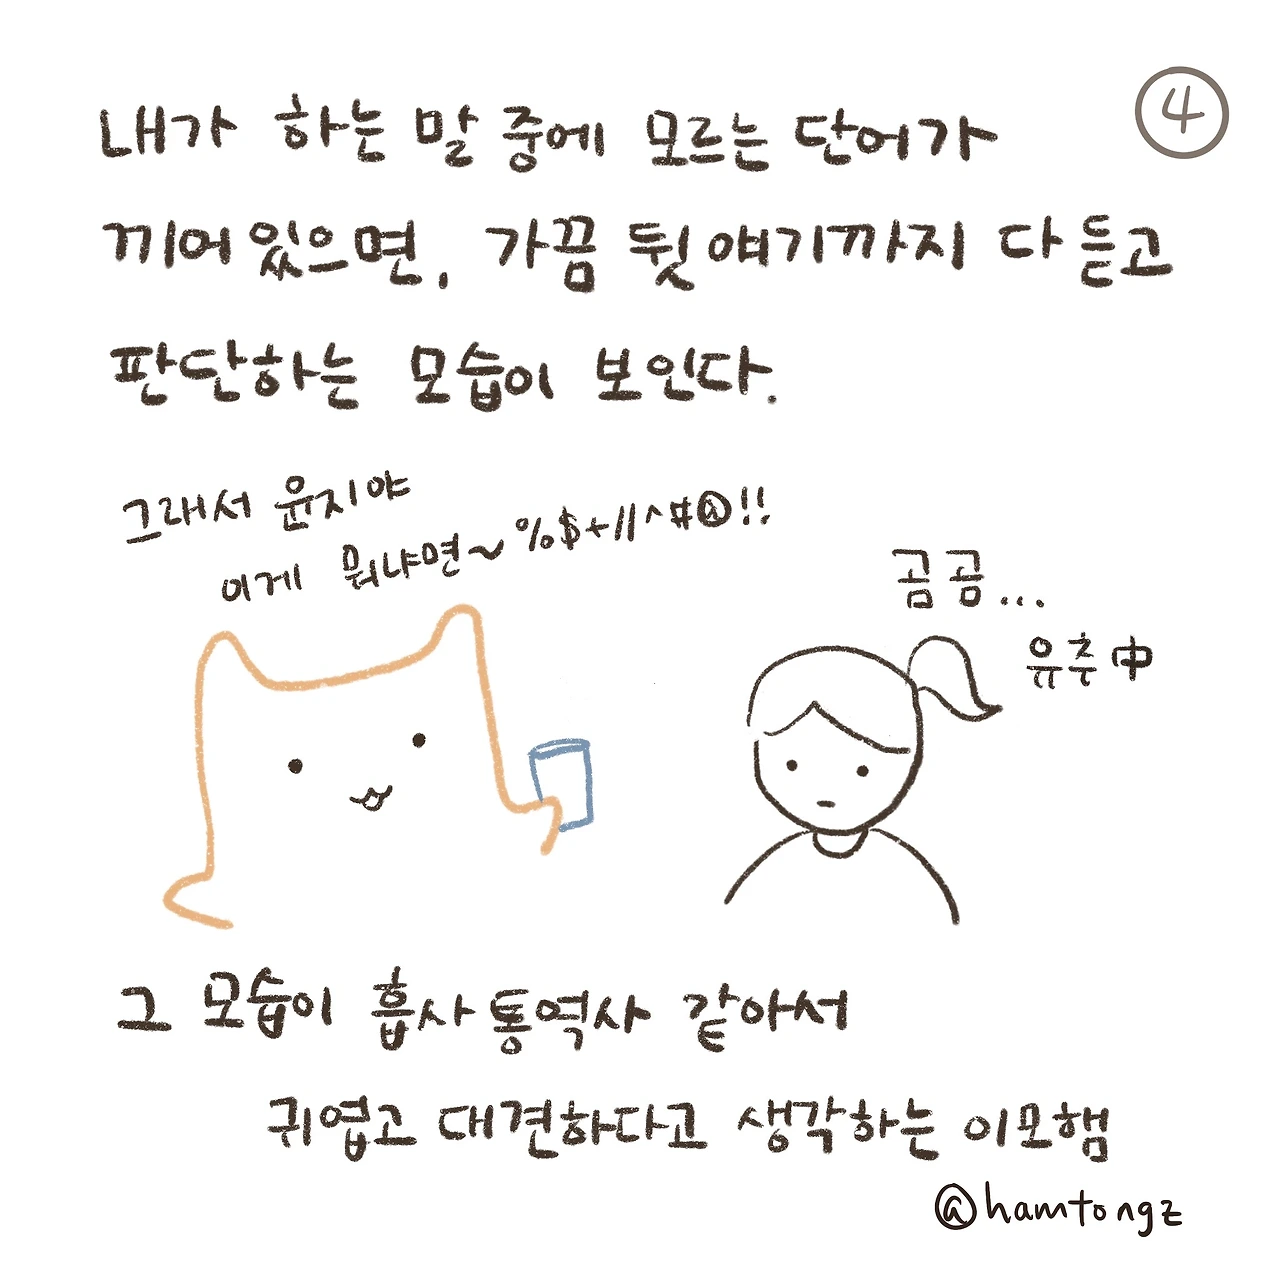 4
내가 하는 말 중에 모르는 단어가
끼어있으면, 가끔 뒷 얘기까지 다 듣고
판단하는 모습이 보인다.
그래서 윤지야
이게 뭐냐면~ %$+//^#@!!
곰곰...
유추中
그 모습이 흡사 통역사 같아서
귀엽고 대견하다고 생각하는 이모햄
@hamtongz